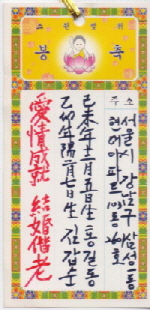 소원성취
봉축
주소
서울시 강남구 삼성동
현대아파트 동 호
己未年十二月五日生 홍길동
乙卯年陽 月七日生 김갑순
愛情成就 結婚偕老